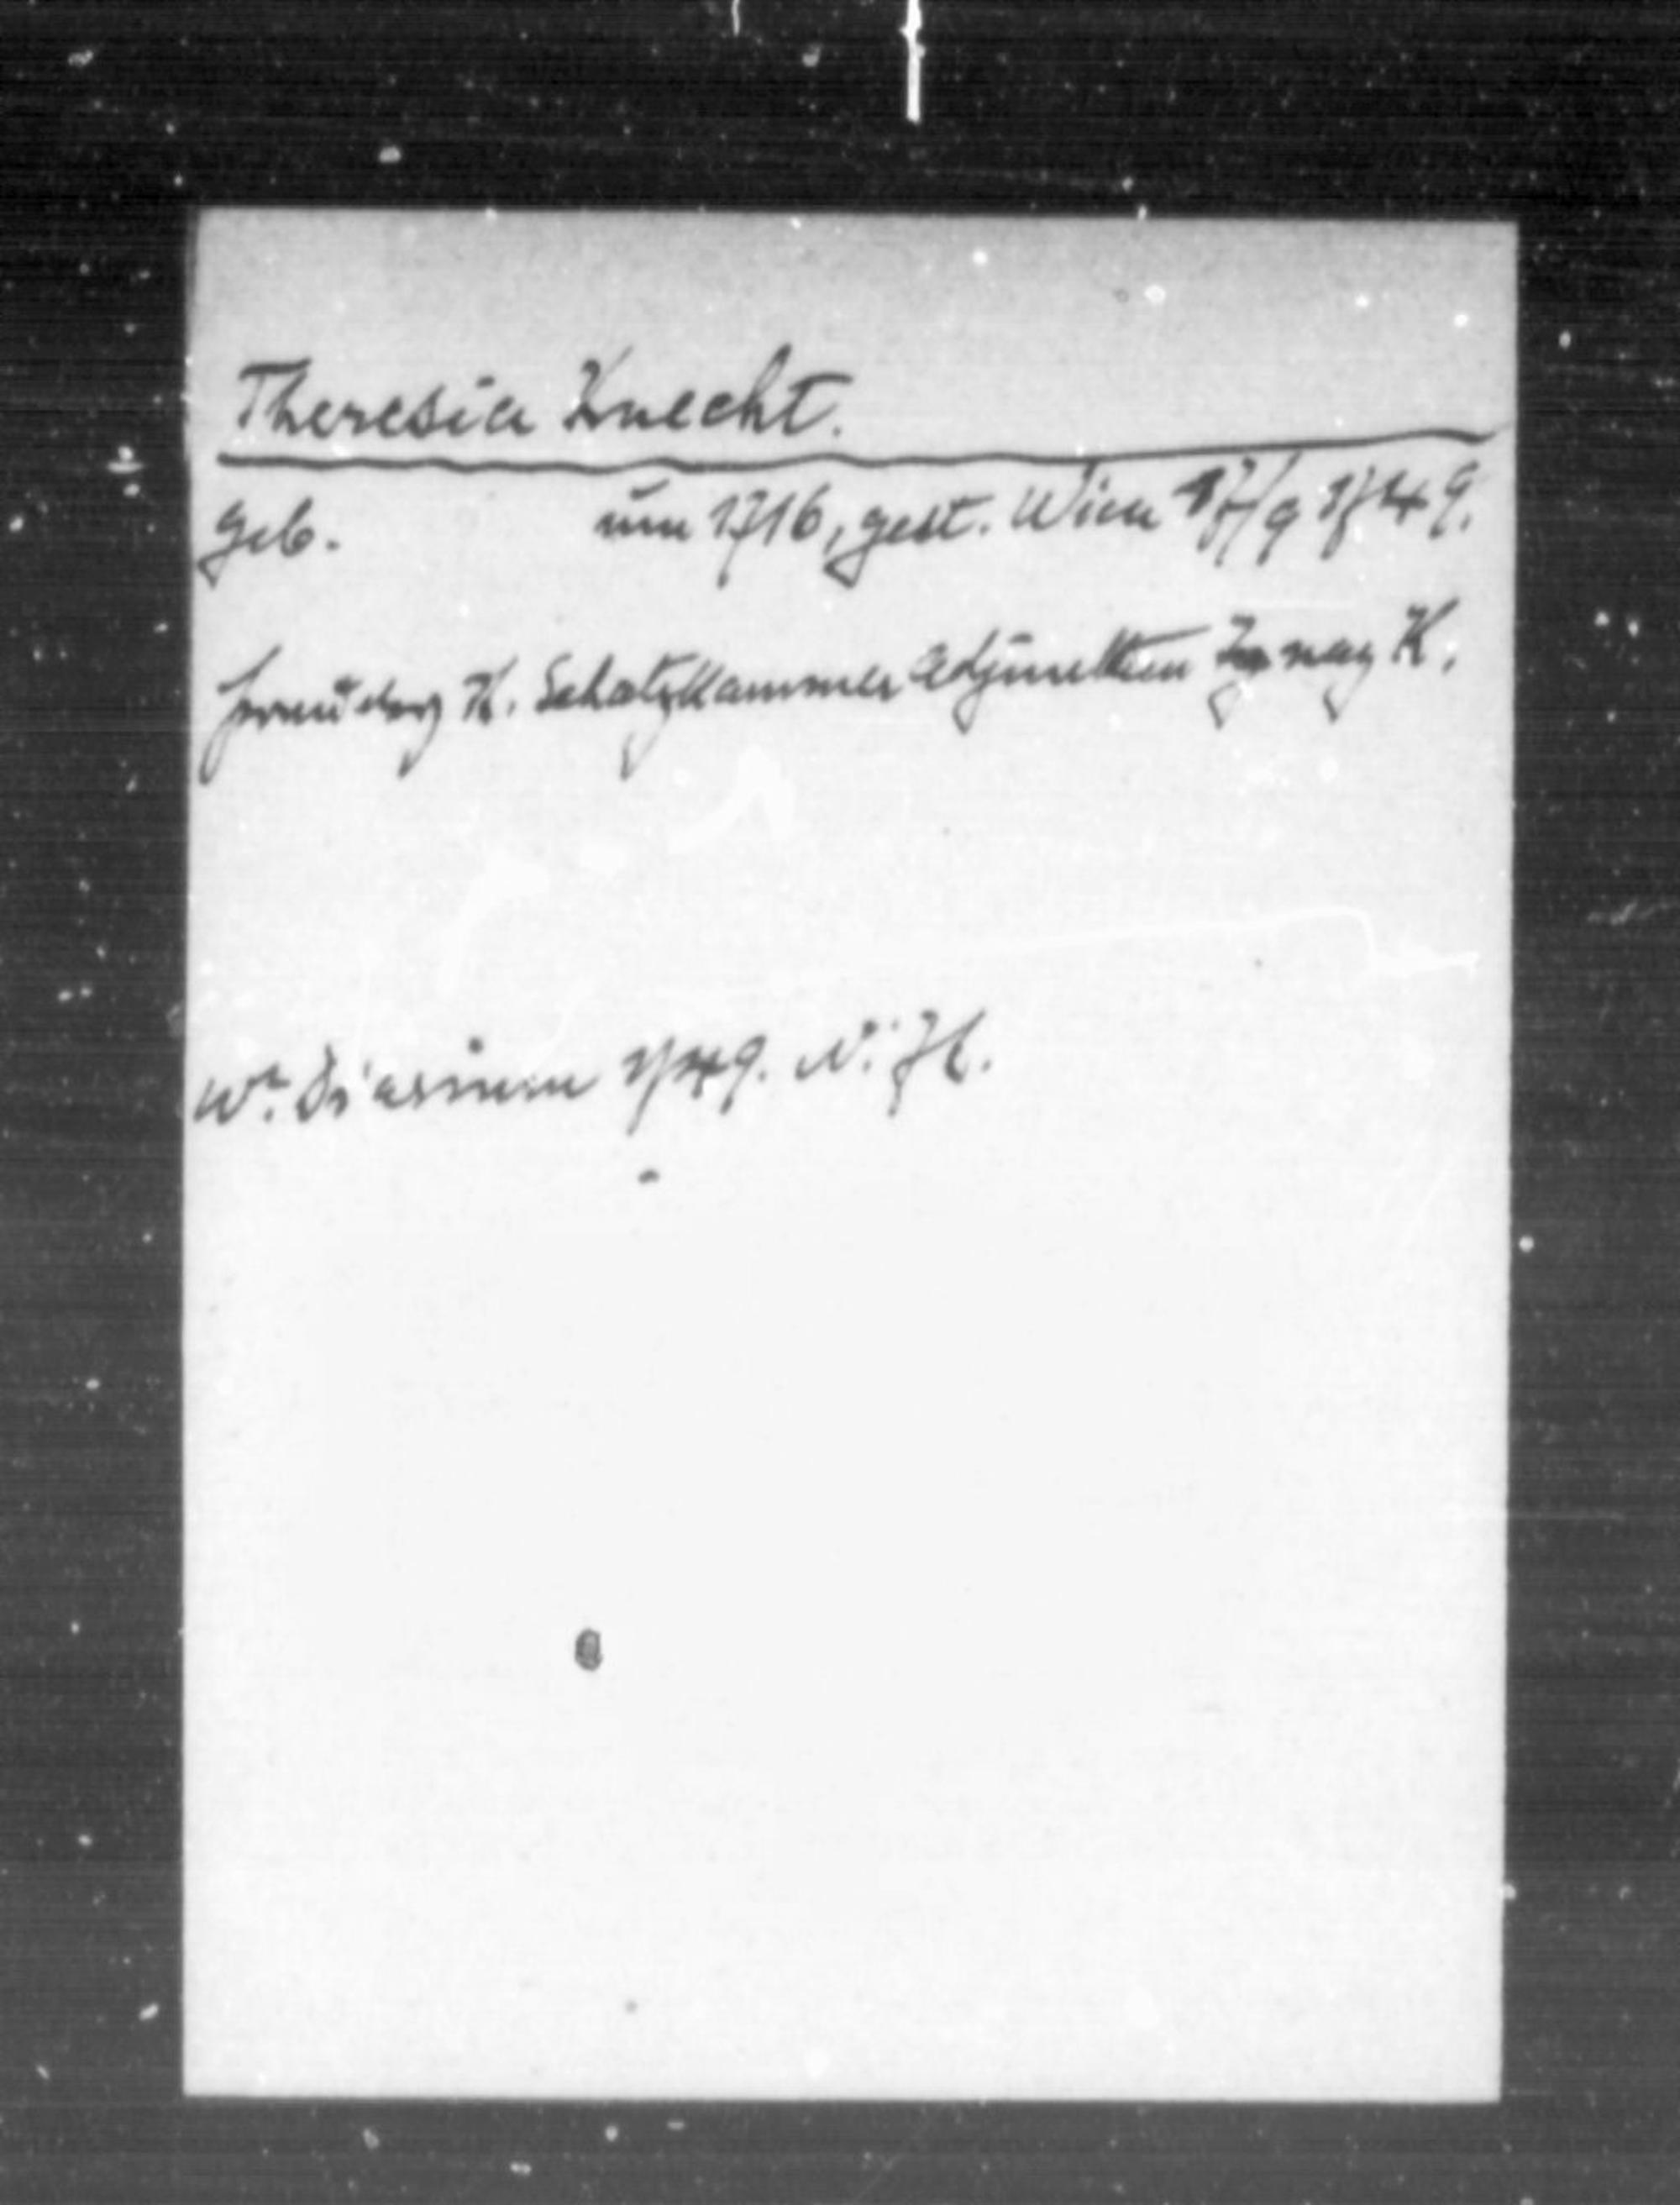 Theresia Knecht.
geb. um 1716, gest. Wien 17/9 1749.
Frau des K. Schatzkammer Adjunkten Ignaz K.
Wr. Diarium 1749. N: 76.